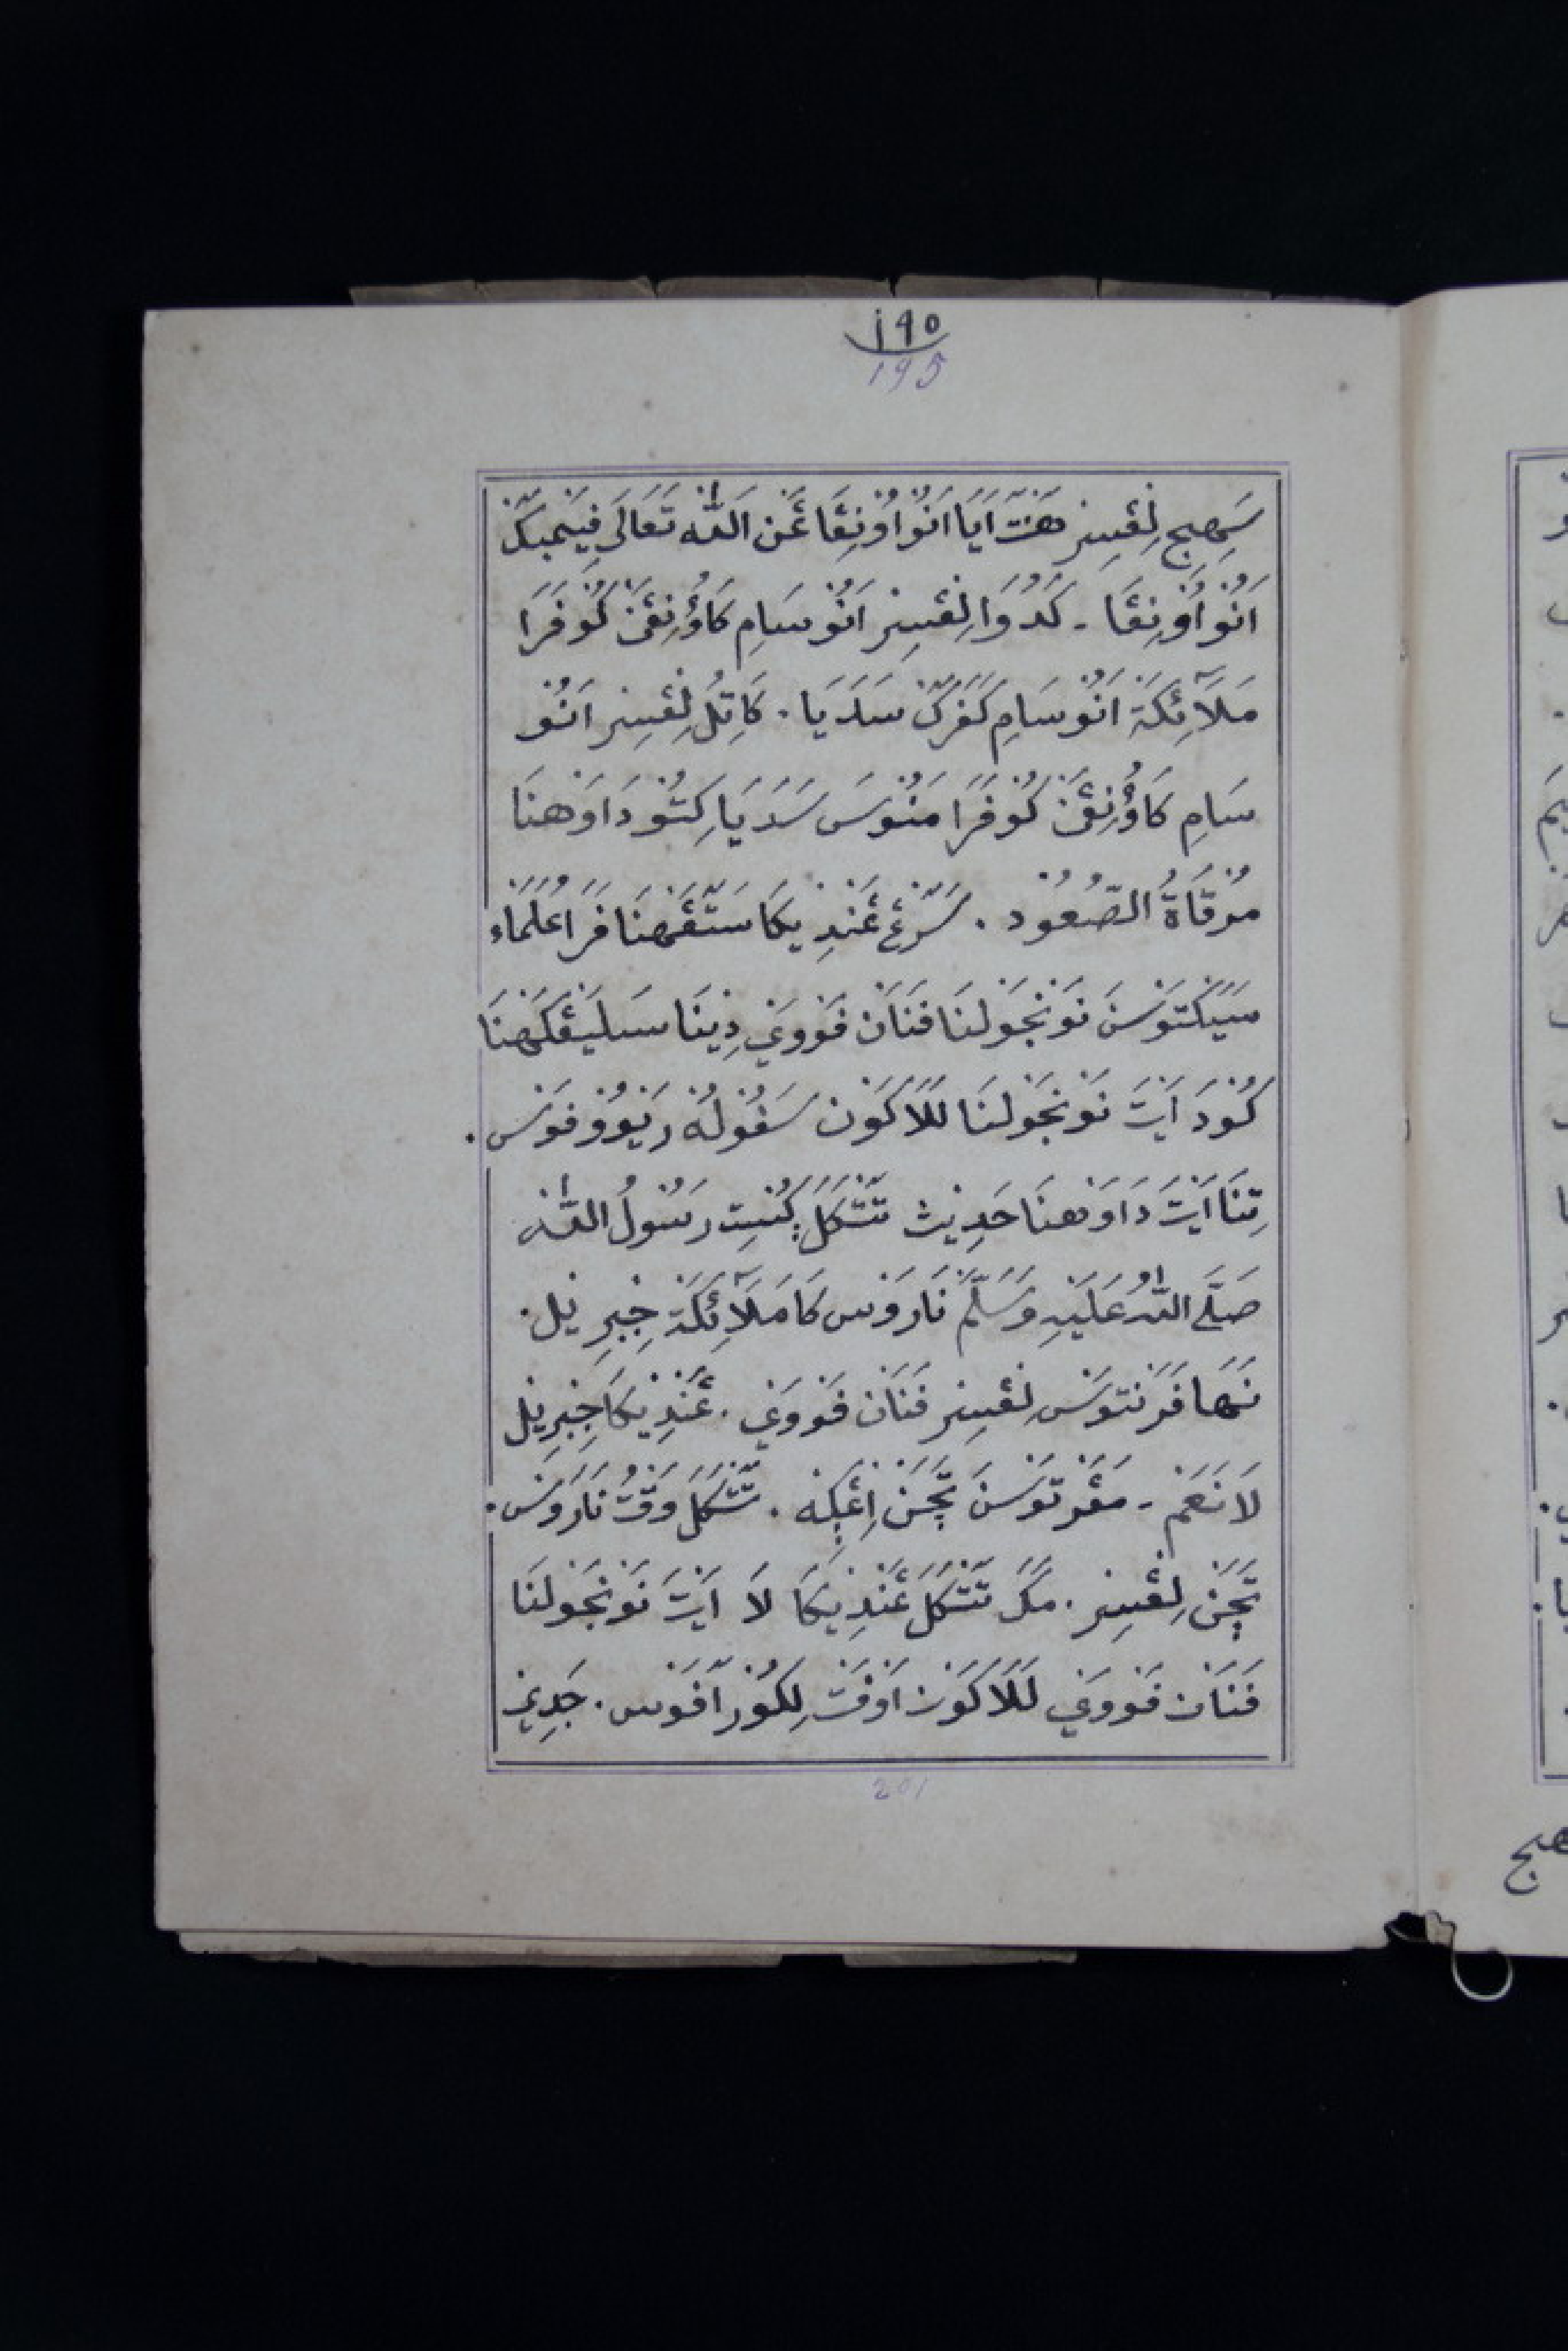 ١٩٥
195
سَهِيج لِڠْسِير هَنْتَ اَيَا اَنُوْ اَوْنِڠَا غَنْ اَللّٰه تَعَالَى فِيَمْبَكَنْ
اَنُوْ اَوْنِڠَا - كَدُوَا لِڠْسِير اَنُوْ سَامِ كَاوُنِڠَنْ كُوْ فَرَا
مَلَآئِكَةْ اَنُوْ سَامِ كَفَرَكْ سَدَيَا . كَاتِلُ لِڠْسِير اَنُوْ
سَامِ كَاوُنِڠَنْ كُوْ فَرَا مَنُوْسَ سَدَيَا كِتُوْ دَاوَهنَا
مِرْقَاةُ الصُّعُوْد . سَرْغَ غَنْدِيكَا سَتَّڠَهنَا فَرَا عُلَمَاء
سَيَكْتَوْسَنَ نَوْنجَوْلنَا فَنَانْ فَوْوَيْ دِيْنَا سَلَيَڠْكَهنَا
كُوْدَ اَيْتَ نَوْنجَوْلنَا لَلَاكَوْن سَفُوْلُهْ رَيْوُوْ فَوْس .
تِنَا اَيْتَ دَاوَهنَا حَدِيْث تَتْكَلَ كَنْجِت رَسُوْلُ اللّٰه
صَلَّى اللّٰهُ عَلَيْهِ وَسَلَّمَ نَارَوْس كَا مَلَآئِكَةْ جِبْرِيل .
نَهَا فَرَنْتَوْس لِڠْسِير فَنَانْ فَوْوَيْ . غَنْدِيكَا جِبْرِيْل
لَا نَعَمْ - مَڠَرْتَوْسَنَ تَچَنْ اِڠْكِهْ . تَتْكَلَ وَقْتُ نَارَوْس .
تَچَنْ لِڠْسِير . مَكَ تَتْكَلَ غَنْدِيكَا لَا اَيْتَ نَوْنجَوْلنَا
فَنَانْ فَوْوَيْ لَلَاكَوْن اَوْفَتْ لِكُوْر اَفَوْس . جَدِيْ
201